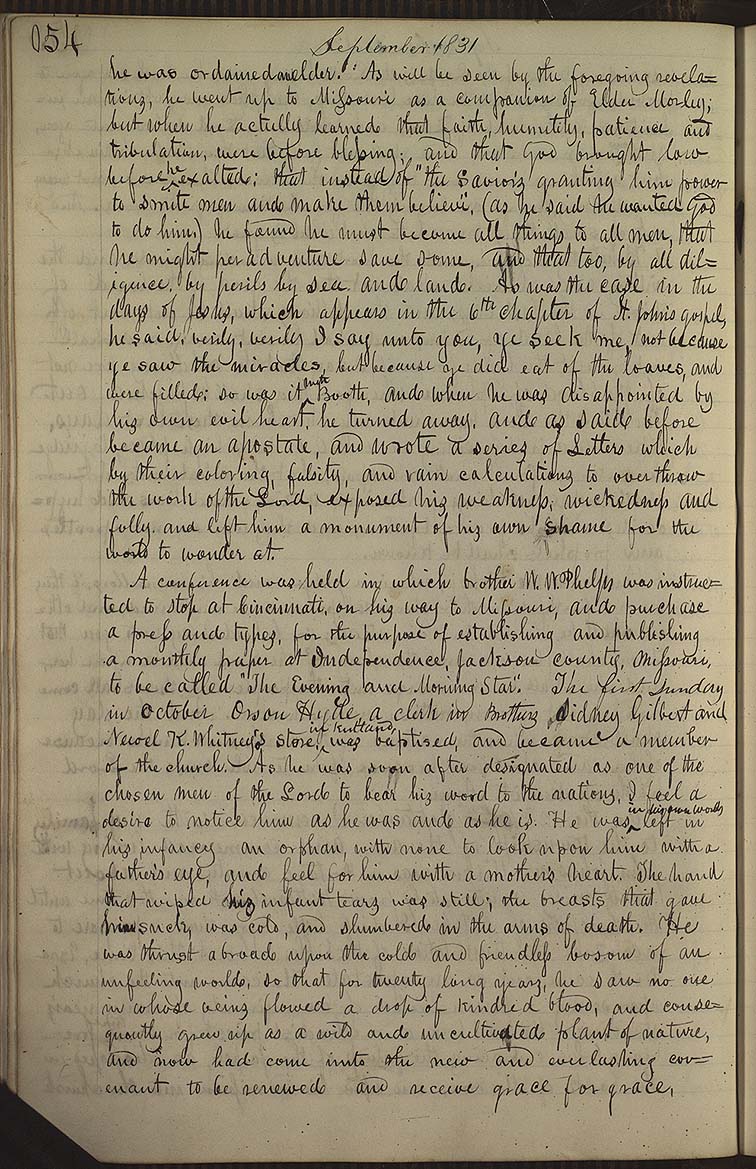 154
September 1831
he was ordained an elder." As will be seen by the foregoing revela=
tions, he went up to Missouri as a companion of Elder Morley;
but when he actully learned that faith, humility, patience and
tribulation, were before blessing; and that God brought low
before he exalted: that instead of "the Savior's granting him power
to smite men and make them believe, (as he said he wanted God
to do him) he found he must become all things to all men, that
he might peradventure save some, and that too, by all dil=
igence, by perils by sea and land. As was the case in the
days of Jesus, which appears in the 6th chapter of St. John's gospel,
he said, verily, verily I say unto you, ye seek me, not because
ye saw the miracles, but because ye did eat of the loaves, and
were filled; so was it with Booth, and when he was disappointed by
his own evil heart, he turned away, and as said before
became an apostate, and wrote a series of Letters which
by their coloring, falsity, and vain calculations to overthrow
the work of the Lord, exposed his weakness, wickedness and
folly, and left him a monument of his own shame for the
world to wonder at.
A conference was held in which brother W. W. Phelps was instruc=
ted to stop at Cincinnati, on his way to Missouri, and purchase
a press and types, for the purpose of establishing and publishing
a monthly paper at Independence, Jackson county, Missouri,
to be called "The Evening and Morning Star". The first Sunday
in October Orson Hyde, a clerk in Brothers Sidney Gilbert and
Newel K. Whitney's store, in Kirtland, was baptised, and became a member
of the church. As he was soon after designated as one of the
chosen men of the Lord to bear his word to the nations, I feel a
desire to notice him as he was and as he is. He was, in his own words left in
his infancy an orphan, with none to look upon him with a
father's eye, and feel for him with a mother's heart. The hand
that wiped his infant tears was still; the breasts that gave
him suck, was cold, and slumbered in the arms of death. He
was thrust abroad upon the cold and friendless bosom of an
unfeeling world, so that for twenty long years, he saw no one
in whose veins flowed a drop of kindred blood, and conse=
quently grew up as a wild and uncultivated plant of nature,
and now had come into the new and everlasting cov=
enant to be renewed and receive grace for grace,